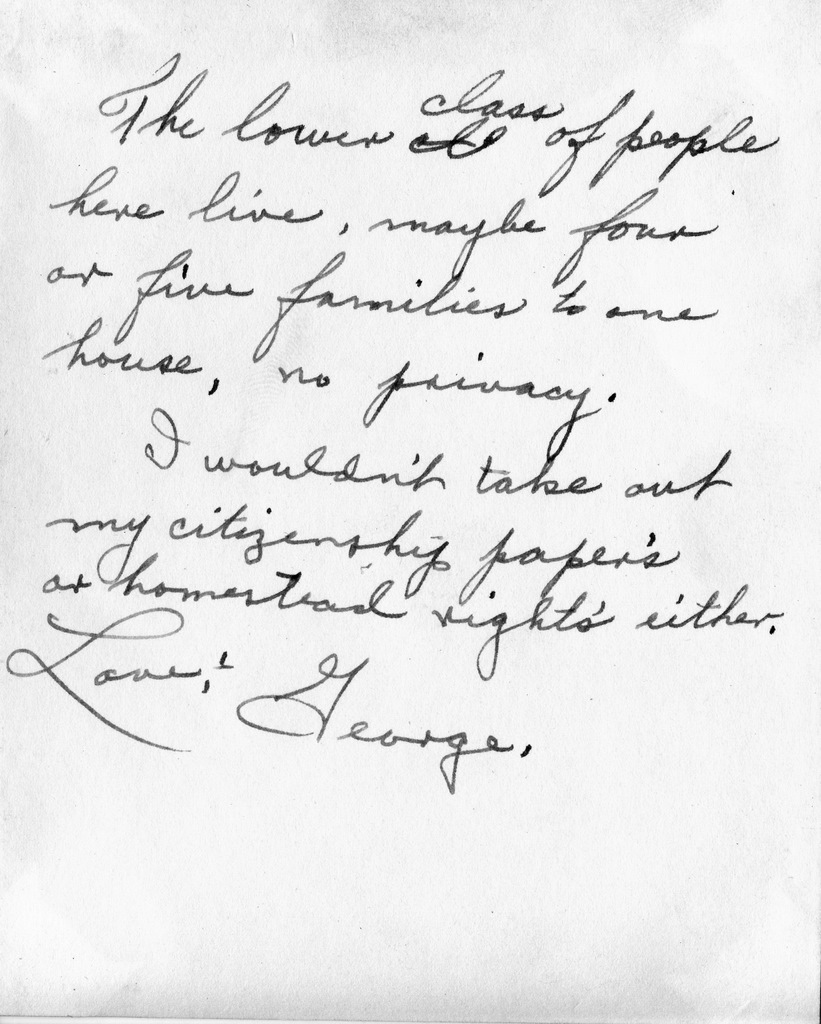 The lower class of people
here live, maybe four
or five families to one
house, no privacy.
I wouldn't take out
my citizenship paper's
or homestead right's either.
Love, George.